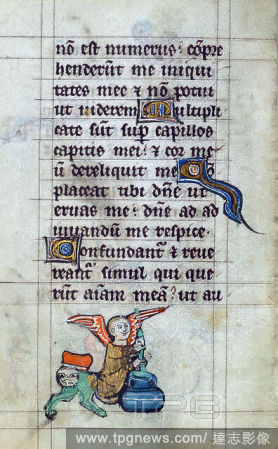 nō est numerus: cōpre
henderūt me iniqui
tates mee & nō potui
ut uiderem Multipli
cate sūt sup capillos
capitis mei: & cor me
ū dereliquit me C
placeat tibi dn̄e ut
eruas me: dn̄e ad ad
iuuandū me respice.
Confundant & reue
reant simul qui que
rūt aīam meā: ut au
TPG
www.tpgnews.com/ 達志影像